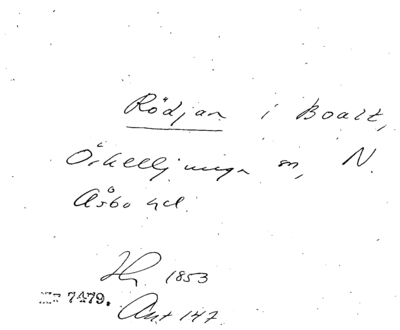 Rödjan i Boalt,
Örkelljunga sn, N.
Åsbo hd.
Hy. 1853
7479.
Ant 147